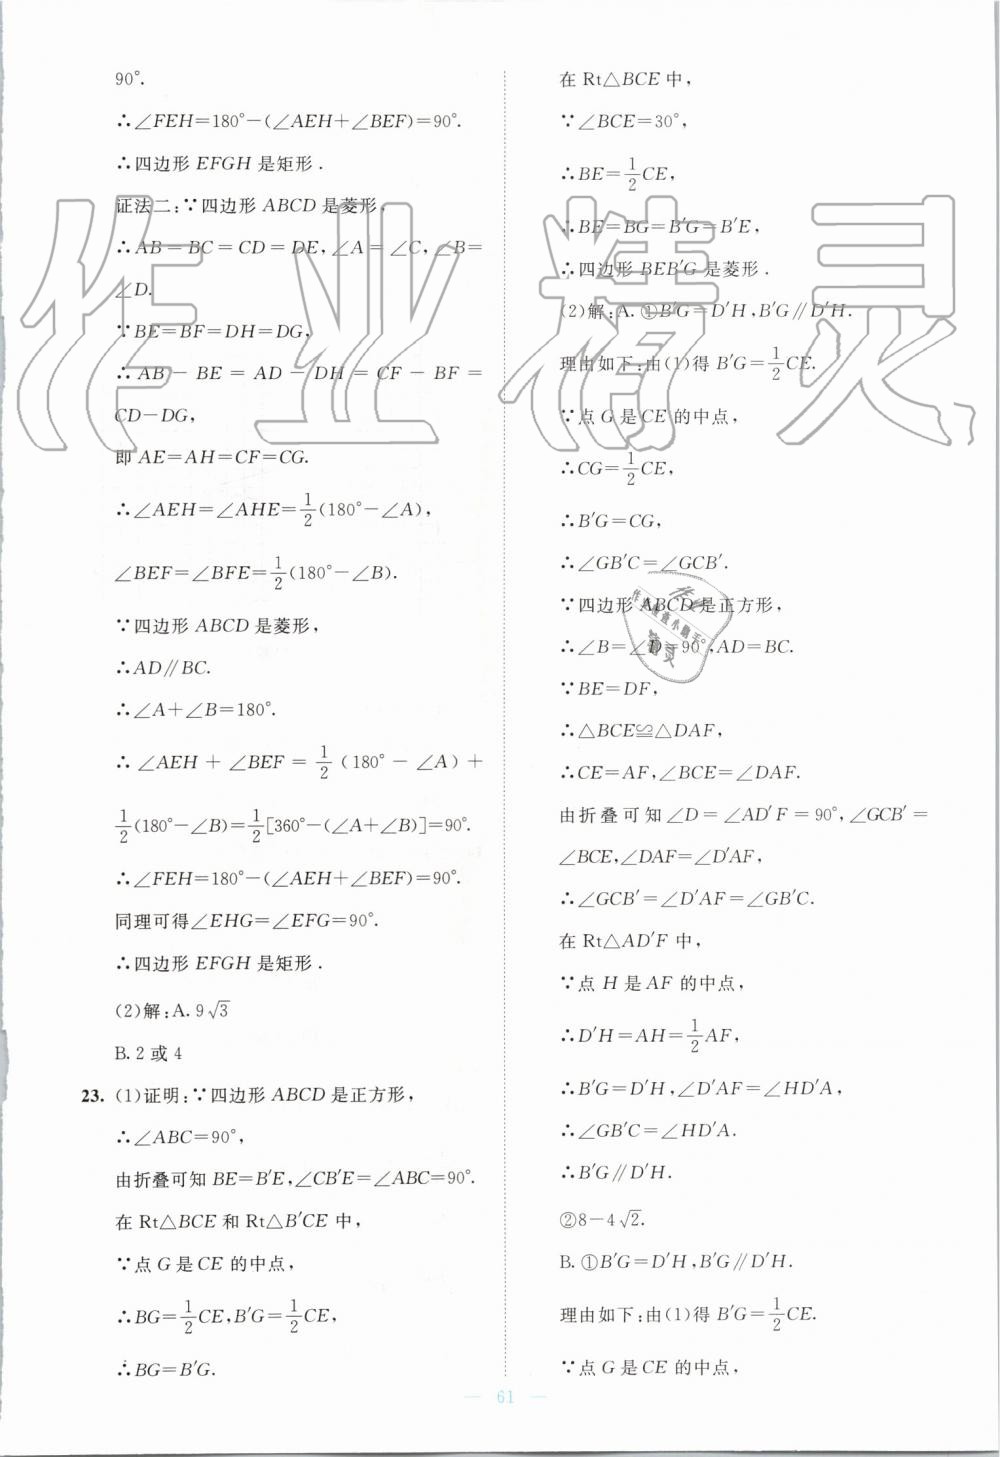 90°.
∴∠FEH=180°-(∠AEH+∠BEF)=90°.
∴四边形 EFGH 是矩形.
证法二:∵四边形 ABCD 是菱形,
∴AB=BC=CD=DE,∠A=∠C,∠B=
∠D.
∵BE=BF=DH=DG,
∴AB-BE=AD-DH=CF-BF=
CD-DG,
即 AE=AH=CF=CG.
∴∠AEH=∠AHE=1/2(180°-∠A),
∠BEF=∠BFE=1/2(180°-∠B).
∵四边形 ABCD 是菱形,
∴AD∥BC.
∴∠A+∠B=180°.
∴∠AEH+∠BEF=1/2(180°-∠A)+
1/2(180°-∠B)=1/2[360°-(∠A+∠B)]=90°.
∴∠FEH=180°-(∠AEH+∠BEF)=90°.
同理可得∠EHG=∠EFG=90°.
∴四边形 EFGH 是矩形.
(2)解:A. 9√3
B. 2 或 4
23. (1)证明:∵四边形 ABCD 是正方形,
∴∠ABC=90°,
由折叠可知 BE=B′E,∠CB′E=∠ABC=90°.
在 Rt△BCE 和 Rt△B′CE 中,
∵点 G 是 CE 的中点,
∴BG=1/2CE,B′G=1/2CE,
∴BG=B′G.
在 Rt△BCE 中,
∵∠BCE=30°,
∴BE=1/2CE,
∴BE=BG=B′G=B′E,
∴四边形 BEB′G 是菱形.
(2)解:A. ①B′G=D′H,B′G∥D′H.
理由如下:由(1)得 B′G=1/2CE.
∵点 G 是 CE 的中点,
∴CG=1/2CE,
∴B′G=CG,
∴∠GB′C=∠GCB′.
∵四边形 ABCD 是正方形,
∴∠B=∠D=90°,AD=BC.
∵BE=DF,
∴△BCE≌△DAF,
∴CE=AF,∠BCE=∠DAF.
由折叠可知∠D=∠AD′F=90°,∠GCB′=
∠BCE,∠DAF=∠D′AF,
∴∠GCB′=∠D′AF=∠GB′C.
在 Rt△AD′F 中,
∵点 H 是 AF 的中点,
∴D′H=AH=1/2AF,
∴B′G=D′H,∠D′AF=∠HD′A,
∴∠GB′C=∠HD′A.
∴B′G∥D′H.
②8-4√2.
B. ①B′G=D′H,B′G∥D′H.
理由如下:由(1)得 B′G=1/2CE.
∵点 G 是 CE 的中点,
61
作业精灵